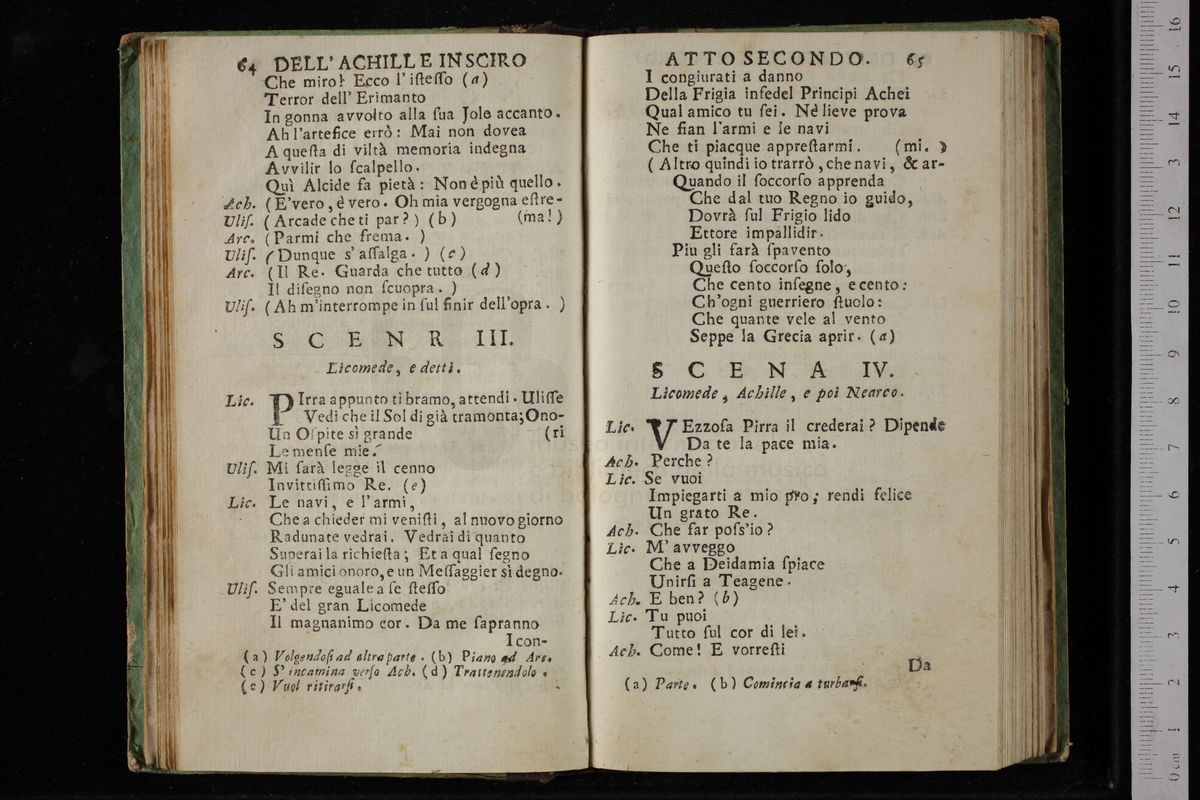 64 DELL' ACHILLE IN SCIRO
Che miro! Ecco l' iſteſſo (a)
Terror dell' Erimanto
In gonna avvolto alla ſua Jole accanto.
Ah l'artefice errò: Mai non dovea
A queſta di viltà memoria indegna
Avvilir lo ſcalpello.
Quì Alcide fa pietà: Non è più quello.
Ach. (E'vero, è vero. Oh mia vergogna eſtre-
Uliſ. (Arcade che ti par?) (b) (ma!)
Arc. (Parmi che frema. )
Uliſ. (Dunque s'aſſalga. ) (c)
Arc. (Il Re. Guarda che tutto (d)
Il diſegno non ſcuopra. )
Uliſ. (Ah m'interrompe in ſul finir dell'opra. )
SCENR III.
Licomede, e detti.
Lic. PIrra appunto ti bramo, attendi. Uliſſe
Vedi che il Sol di già tramonta; Ono-
Un Oſpite sì grande (ri
Le menſe mie.
Uliſ. Mi ſarà legge il cenno
Invittiſſimo Re. (e)
Lic. Le navi, e l'armi,
Che a chieder mi veniſti, al nuovo giorno
Radunate vedrai. Vedrai di quanto
Superai la richieſta; Et a qual ſegno
Gli amici onoro, e un Meſſaggier sì degno.
Uliſ. Sempre eguale a ſe ſteſſo
E' del gran Licomede
Il magnanimo cor. Da me ſapranno
I con-
(a) Volgendoſi ad altra parte. (b) Piano ad Arc.
(c) S' incamina verſo Ach. (d) Trattenendolo.
(e) Vuol ritirarſi.
ATTO SECONDO. 65
I congiurati a danno
Della Frigia infedel Principi Achei
Qual amico tu ſei. Nè lieve prova
Ne fian l'armi e le navi
Che ti piacque appreſtarmi. (mi. )
(Altro quindi io trarrò, che navi, & ar-
Quando il ſoccorſo apprenda
Che dal tuo Regno io guido,
Dovrà ſul Frigio lido
Ettore impallidir.
Piu gli farà ſpavento
Queſto ſoccorſo ſolo,
Che cento inſegne, e cento:
Ch'ogni guerriero ſtuolo:
Che quante vele al vento
Seppe la Grecia aprir. (a)
SCENA IV.
Licomede, Achille, e poi Nearco.
Lic. VEzzoſa Pirra il crederai? Dipende
Da te la pace mia.
Ach. Perche?
Lic. Se vuoi
Impiegarti a mio pro; rendi felice
Un grato Re.
Ach. Che far poſs'io?
Lic. M' avveggo
Che a Deidamia ſpiace
Unirſi a Teagene.
Ach. E ben? (b)
Lic. Tu puoi
Tutto ſul cor di lei.
Ach. Come! E vorreſti
Da
(a) Parte. (b) Comincia a turbarſi.
0 cm 1 2 3 4 5 6 7 8 9 10 11 12 13 14 15 16